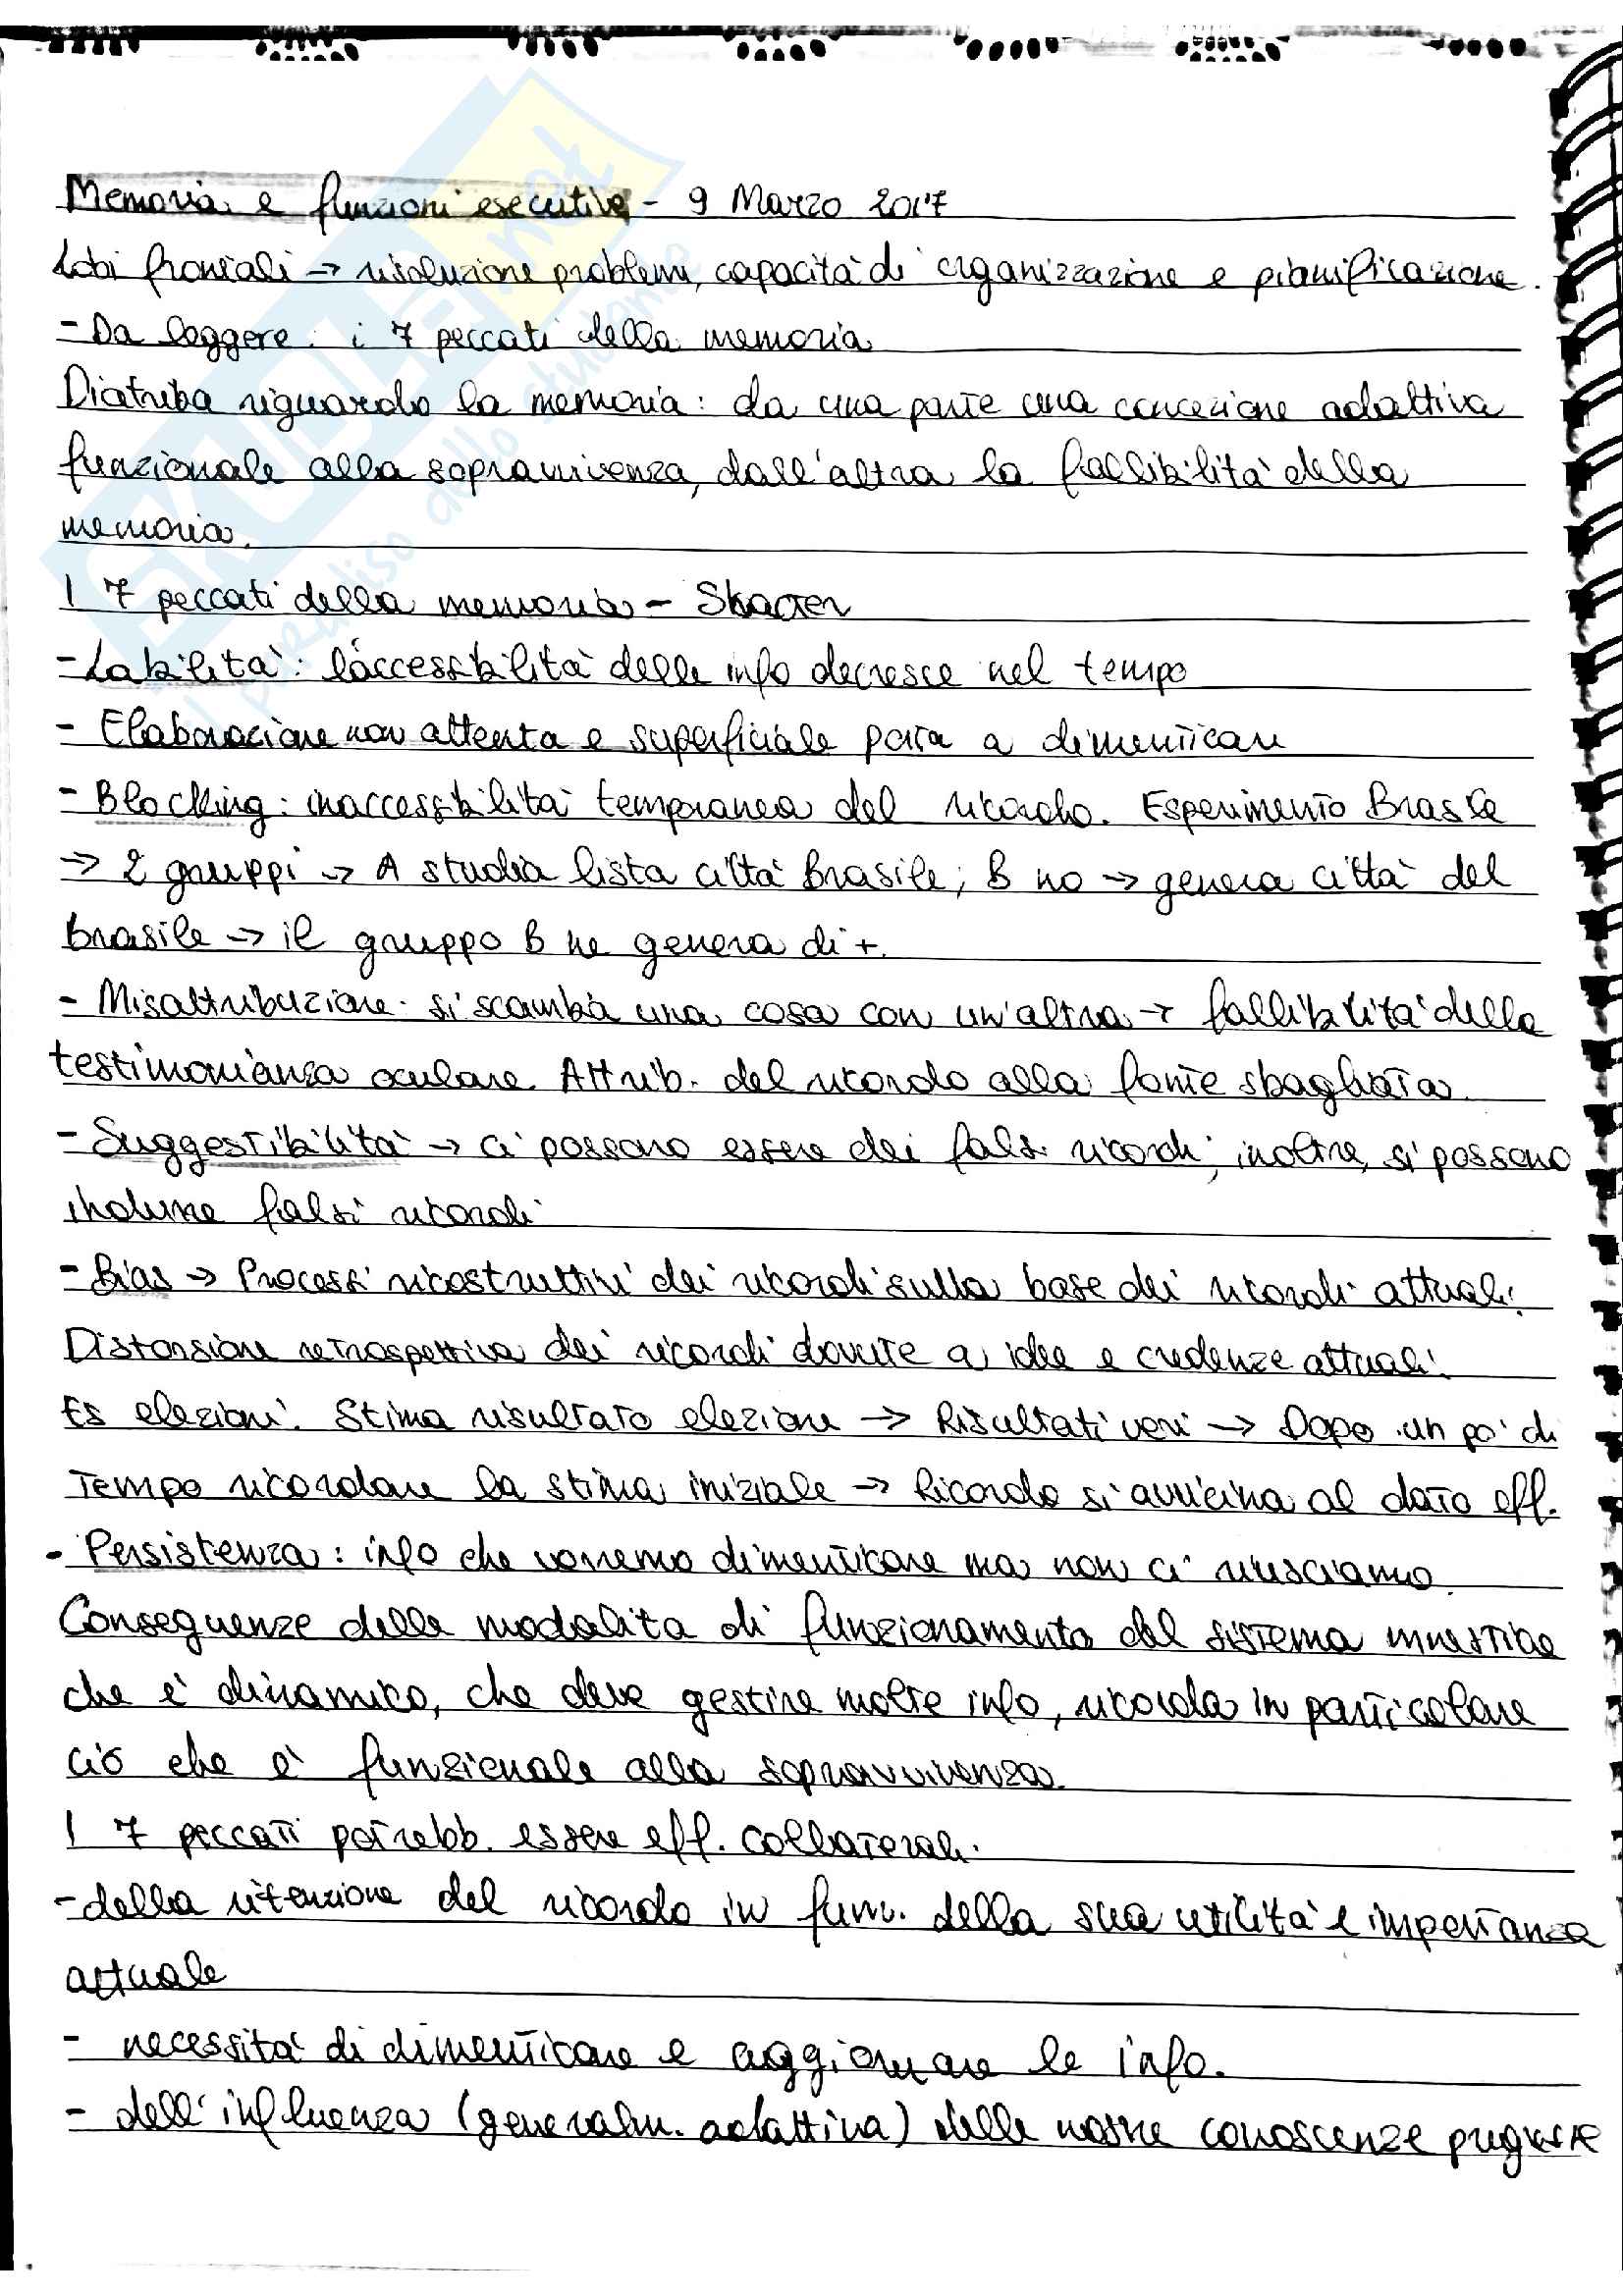 Memoria e funzioni esecutive - 9 Marzo 2017
Lobi frontali → risoluzione problemi, capacità di organizzazione e pianificazione.
- Da leggere: i 7 peccati della memoria
Diatriba riguardo la memoria: da una parte una concezione adattiva
funzionale alla sopravvivenza, dall'altra la fallibilità della
memoria.
I 7 peccati della memoria - Shacter
- Labilità: l'accessibilità delle info decresce nel tempo
- Elaborazione non attenta e superficiale porta a dimenticare
- Blocking: inaccessibilità temporanea del ricordo. Esperimento Brasile
→ 2 gruppi → A studia lista città Brasile; B no → genera città del
brasile → il gruppo B ne genera di +.
- Misattribuzione: si scambia una cosa con un'altra → fallibilità della
testimonianza oculare. Attrib. del ricordo alla fonte sbagliata.
- Suggestibilità → ci possono essere dei falsi ricordi; inoltre, si possono
indurre falsi ricordi
- Bias → Processi ricostruttivi dei ricordi sulla base dei ricordi attuali.
Distorsione retrospettiva dei ricordi dovute a idee e credenze attuali.
Es elezioni. Stima risultato elezione → Risultati veri → Dopo un po' di
tempo ricordare la stima iniziale → Ricordo si avvicina al dato eff.
- Persistenza: info che vorremo dimenticare ma non ci riusciamo.
Conseguenze delle modalità di funzionamento del sistema mnestico
che è dinamico, che deve gestire molte info, ricorda in particolare
ciò che è funzionale alla sopravvivenza.
I 7 peccati potrebb. essere eff. collaterali.
- della ritenzione del ricordo in funz. della sua utilità e importanza
attuale
- necessità di dimenticare e aggiornare le info.
- dell'influenza (generalm. adattiva) delle nostre conoscenze pregresse
SKUOLA.net
il paradiso dello studente